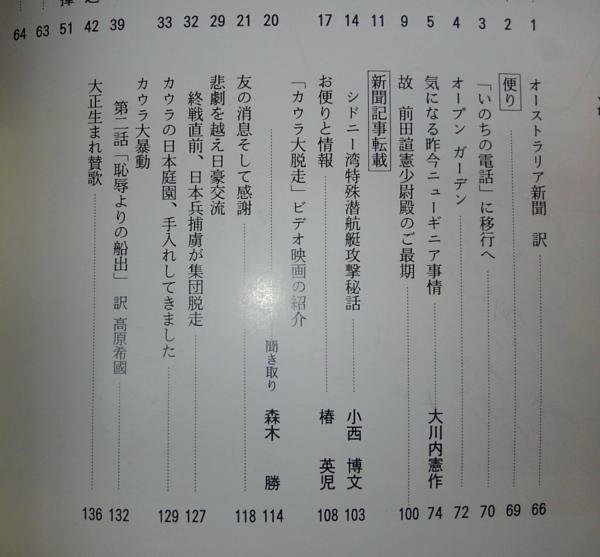 1
2
3
4
5
9
11
14
17
20
21
29
32
33
39
42
51
63
64
オーストラリア新聞 訳 66
便り 69
「いのちの電話」に移行へ 70
オープン ガーデン 72
気になる昨今ニューギニア事情 大川内憲作 74
故 前田諠憲少尉殿のご最期 100
新聞記事転載
シドニー湾特殊潜航艇攻撃秘話 小西 博文 103
お便りと情報 椿 英児 108
「カウラ大脱走」ビデオ映画の紹介
聞き取り 森木 勝 114
友の消息そして感謝 118
悲劇を越え日豪交流
終戦直前、日本兵捕虜が集団脱走 127
カウラの日本庭園、手入れしてきました 129
カウラ大暴動
第二話「恥辱よりの船出」 訳 高原希國 132
大正生まれ賛歌 136